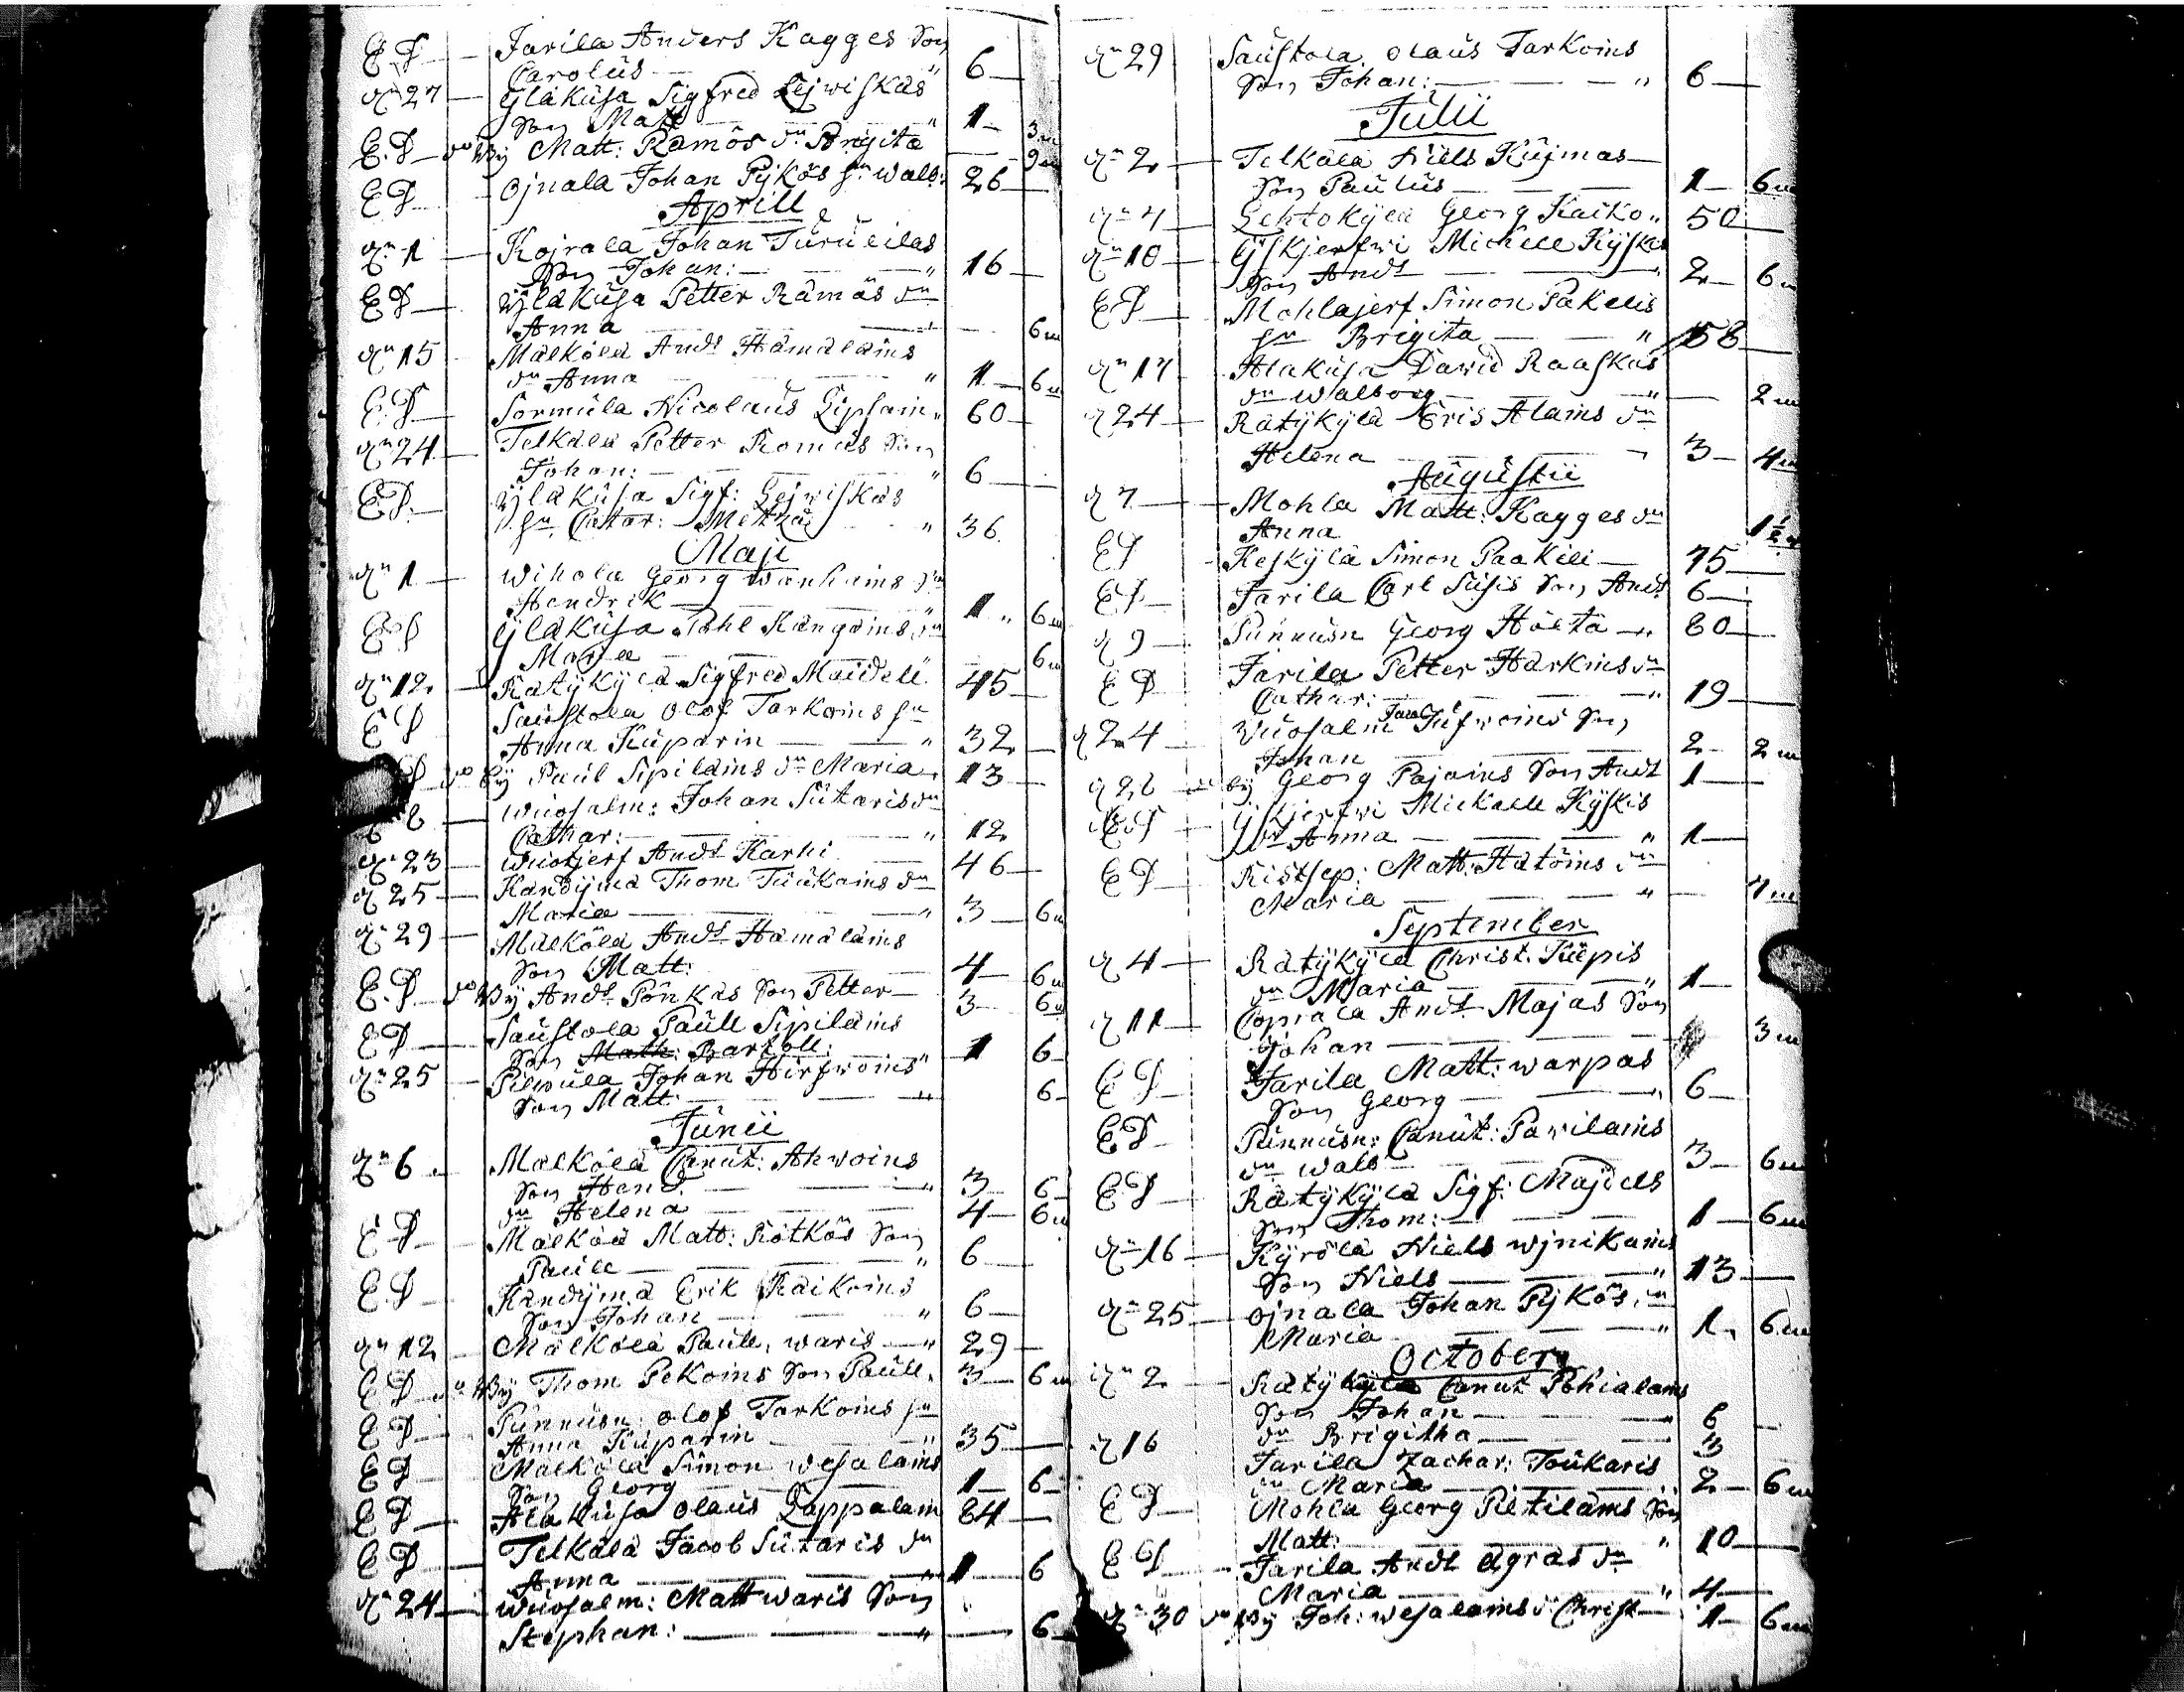 E D — Jarila Anders Kagges Son
Carolus — " 6 —
dn 27 — Ylakusa Sigfred Lejwiskas
Son Matt — " 1 — 3 m
E. D — do By Matt: Rämös dr Brigita — 9 m
E D — Ojnala Johan Pijkös hu Walb: 26 —
Aprill
dn 1 — Kojrala Johan Turulilas
Son Johan: — " 16 —
E D — Ylakusa Petter Rämäs dr
Anna — 6 m
dn 15 — Mälkölä Andr Hämäläins
dr Anna — " 1 — 6 m
E. D — Sormula Nicolaus Lipsain " 60 —
dn 24 — Telkälä Petter Romus Son
Johan: — " 6 —
E D. — Ylakusa Sigf: Lejwiskas
hu Cathar: " 36
Maji
dn 1 — Wihola Georg Wanhains Son
Hendrik — 1 " 6 m
E D Ylakusa Påhl Kangains dr
Maria — 6 m
dn 12 — Rätykylä Sigfred Maidell 45 —
E D Saustola Olof Tarkoins hu
Anna Kuparin — " 32 —
D do By Paul Sipiläins dr Maria 13 —
Wuosalm: Johan Sutaris dr
Cathar: — " 12
dn 23 — Wuotjerf Andr Karhi — 46 —
d 25 — Kandyma Thom Tiukains dr
Maria — " 3 — 6 m
dn 29 — Mälkölä Andr Hämäläins
Son Matt: — 4 — 6 m
E. D — do By Andr Pönkäs Son Petter — 3 6 m
E D — Saustola Paull Sipiläins
Son Bartoll: 1 6 —
dn 25 — Pilpula Johan Hirfwoins "
Son Matt: — " 6 —
Junii
dn 6 — Mälkölä Canut: Ahwoins
Son Hend: — " 3 — 6 —
dr Helena — 4 — 6 m
E D — Mälkölä Matt: Rötkös Son
Paull — " 6 —
E D — Kandyma Erik Raikoins
Son Johan — " 6 —
dn 12 — Mälkölä Paull, waris — " 29 —
E D do By Thom Pekoins Son Paull. 3 — 6 m
E D — Punnusn: Olof Tarkoins hu
Anna Kuparin — " 35 —
E D — Mälkölä Simon Wesalains
Son Georg — 1 — 6 —
E D — Alakusa Olaus Lappalain 84 —
E D — Telkälä Jacob Sutaris dr
Anna — " 1 — 6
dn 24 — Wuosalm: Matt waris Son
Stephan: — " — 6 —
dn 29 Saustola Olaus Tarkoins
Son Johan: — " 6 —
Julii
dn 2 — Telkälä Niels Kujmas —
Son Paulus — 1 — 6 m
dn 4 — Lehtokylä Georg Kaiko " 50 —
dn 10 — Yskjerfwi Michell Kyskis
Son Andr — 2 — 6 m
E D — Mohlajerf Simon Pakelis
hu Brigita — " 58 —
dn 17 — Alakusa David Raaskas
dr Walborg — " — 2 m
d 24 — Rätykylä Eris Alains dr
Helena — 3 — 4 m
Augustii
d 7 — Mohla Matt: Kagges dr
Anna 1 ½ m
E D — Keskylä Simon Paakeli — 75 —
E D — Jarila Carl Susis Son Andr 6 —
d 9 — Punnusn Georg Hölta — " 80 —
E D — Jarila Petter Harkins dr
Cathar: — " 19 —
d 24 — Wuosalm Jufwoins Son
Johan — 2 — 2 m
do By Georg Pajains Son Andr 1 —
E. D — Yskjerfwi Mickell Kyskis
dr Anna — " 1 —
E D — Ristsep: Matt: Hätöins dr
Maria — " — 7 m
September
d 4 — Rätykylä Christ: Kuepis
dr Maria — " 1 —
d 11 — Coprala Andr Majas Son
Johan — 3 m
E D — Jarila Matt: warpas
Son Georg — " 6 —
E D — Punnusn: Canut: Pawilains
dr Walb — 3 — 6 m
E D — Rätykylä Sigf: Majdels
Son Thom: — 1 — 6 m
dn 16 — Kyrölä Niels Wjnikains
Son Niels — " 13 —
dn 25 — Ojnala Johan Pijkös dr
Maria — " 1 " 6 m
October
dn 2 — Rätykylä Canut Pohialains
Son Johan — " 6 —
dr Brigitha — 3
d 16 Jarila Zachar: Toukaris
dr Maria — 2 — 6 m
E D — Mohla Georg Piltiläins Son
Matt: — " 10 —
E D — Jarila Andr Ägräs dr
Maria — " 4 —
dn 30 do By Joh: Wesalains dr Christ — 1 — 6 m